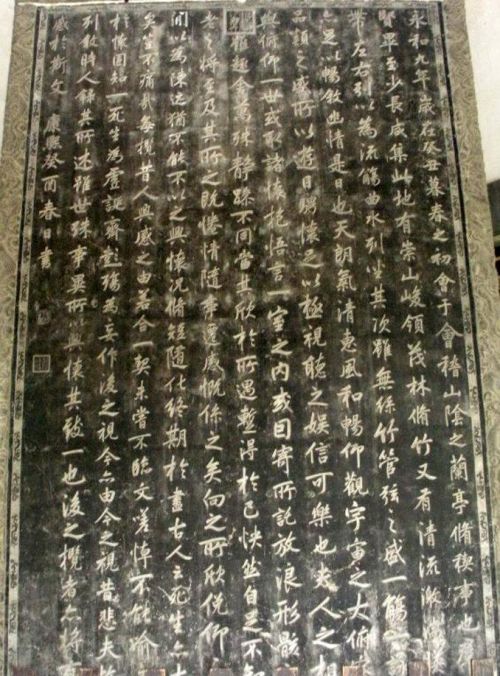 永和九年歲在癸丑暮春之初會于會稽山陰之蘭亭脩禊事也羣
賢畢至少長咸集此地有崇山峻領茂林脩竹又有清流激湍映
帶左右引以為流觴曲水列坐其次雖無絲竹管弦之盛一觴一詠
亦足以暢敘幽情是日也天朗氣清惠風和暢仰觀宇宙之大俯察
品類之盛所以遊目騁懷足以極視聽之娛信可樂也夫人之相
與俯仰一世或取諸懷抱悟言一室之內或因寄所託放浪形骸
雖趣舍萬殊靜躁不同當其欣於所遇暫得於己怏然自足不知
老之將至及其所之既惓情隨事遷感慨係之矣向之所欣俛仰
間以為陳迹猶不能不以之興懷況脩短隨化終期於盡古人云死生亦大
矣豈不痛哉每攬昔人興感之由若合一契未嘗不臨文嗟悼不能喻
於懷固知一死生為虛誕齊彭殤為妄作後之視今亦由今之視昔悲夫故
列敘時人錄其所述雖世殊事異所以興懷其致一也後之攬者亦將有
感於斯文 康熙癸酉春日書